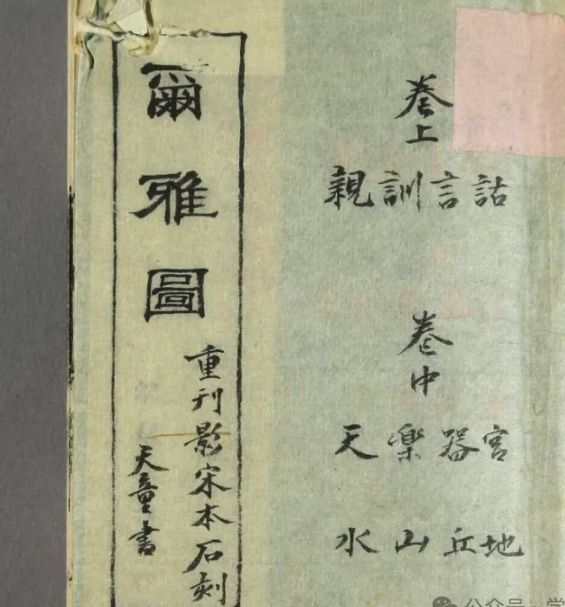 爾雅圖
重刊影宋本石刻
天童書
卷上
詁言訓親
卷中
宮器樂天
地丘山水